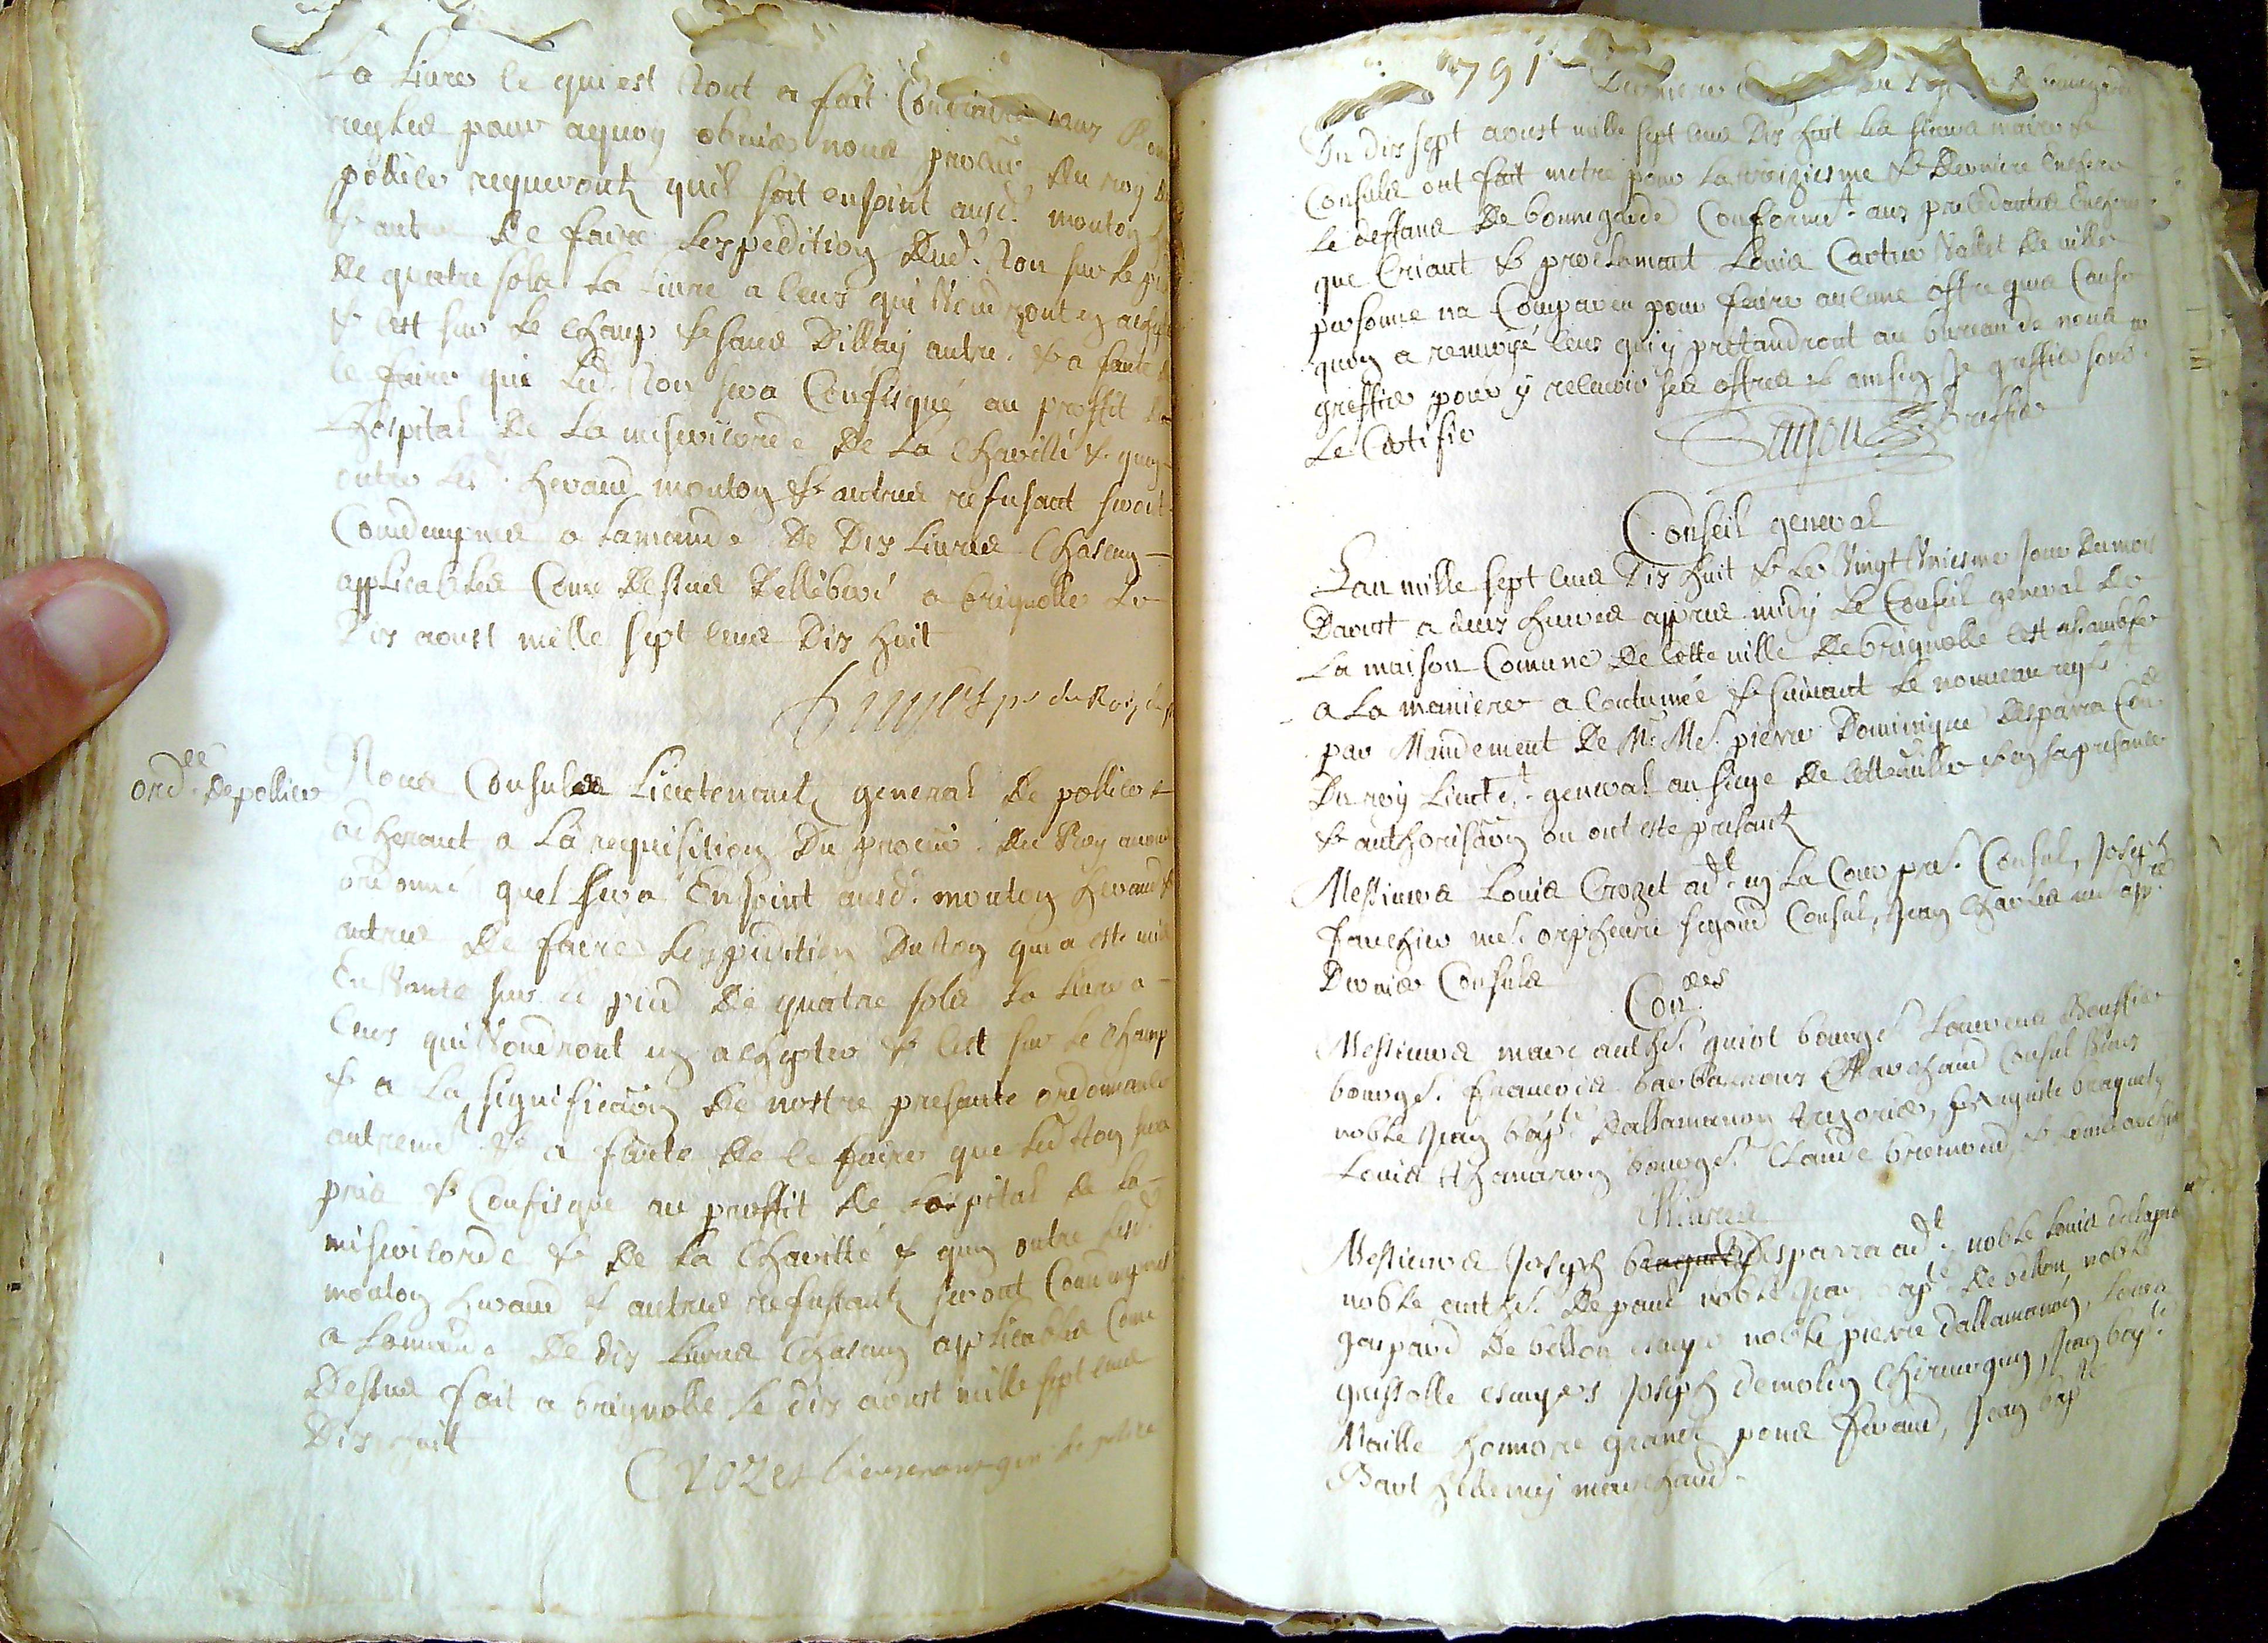 La Livre ce qui est tout a fait Contraire aux
regles pour aquoy obvier nous procur. du roy de
pollice requeront quil soit enjoint ausd. mouton
& autres de faire lexpedition dud. ton sur le pied
de quatre sols la Livre a ceux qui voudront en achepter
& cest sur le champ & sans dillay autre. & a faute de
ce faire que led. ton sera Confisqué au proffit de
Lhospital de la misericorde de la Charitté & quen
outre lesd. heraud mouton & autres refusant seroit
Condempnes a Lamande de dix Livres Chascun
applicables Come dessus dellibéré a brignolle Le
Dix aoust mille sept cens dix huit
pr. du Roy
ordce. de pollice
Nous Consulz Lieutenantz general de pollice
adherant a La requisition du procur. du Roy avons
ordonné quel sera Enjoint ausd. mouton heraud &
autres de faire lexpedition du ton qui a este mis
En vante sur le pied de quatre sols La Livre a
ceux qui voudront en achepter & cest sur le champ
& a La signification de nostre presante ordonance
autrement & a faute de ce faire que led ton sera
pris & Confisque au proffit de Lospital de la
misericorde & de la Charitté & quen outre lesd.
mouton heraud & autres refusantz seront Condempnes
a Lamande de dix Livres Chascun applicables Come
dessus fait a brignolle le dix aoust mille sept cens
Dix huit
Crozet lieutenant gen de police
791
Du dix sept aoust mille sept cens dix huit les sieurs maire &
Consuls ont fait metre pour la troiziesme & derniere Enchere
Le deffans de bonnegarde Conformt. aux precedantes Encheres
que Criant & proclamant Louis Cartier Valet de ville
personne na Comparu pour faire aucune offre que Cause
quoy a renvoyé ceux quy y pretandront au bureau de nous
greffier pour y recevoir ses offres & ainsin Je greffier sousd.
Le Certifie
Greffier
Conseil general
Lan mille sept cens dix huit & le vingt uniesme Jour du mois
Daoust a deux heures appres midy Le Conseil general de
La maison Comune de Cette ville de brignolle cest assamblee
a La maniere a Coutumée & suivant Le nouveau reglt.
par Mandement de Mr. Me. pierre Dominique desparra Conr.
Du roy Lieutt. general au siege de Cette ville & en sa presance
& authorisation ou ont este presantz
Messieurs Louis Crozet adt. en La Cour pres. Consul, Joseph
fauchier me. orpheuvre segond Consul, Jean Charles me appre.
Dernier Consuls
Conders
Messieurs marc anthe. guiot bourgs. Laurens Bouffier
bourgs. francois barbarroux Marchand Consul vieux
noble Jean bapte. dallamanon tresorier, hyagusta braquety
Louis Athanaron bourgs. Claude bremond & Louis
Messieurs Joseph desparra adt. noble Louis
noble anthe. de paul noble Jean bapte. de bellon noble
gaspard de bellon escuyer noble pierre dallamanon,
grissolle escuyers Joseph demolin Chirurgien, Jean bapte.
Maille honnore granet pons feraud, Jean bapte
Barthelemy marchand.